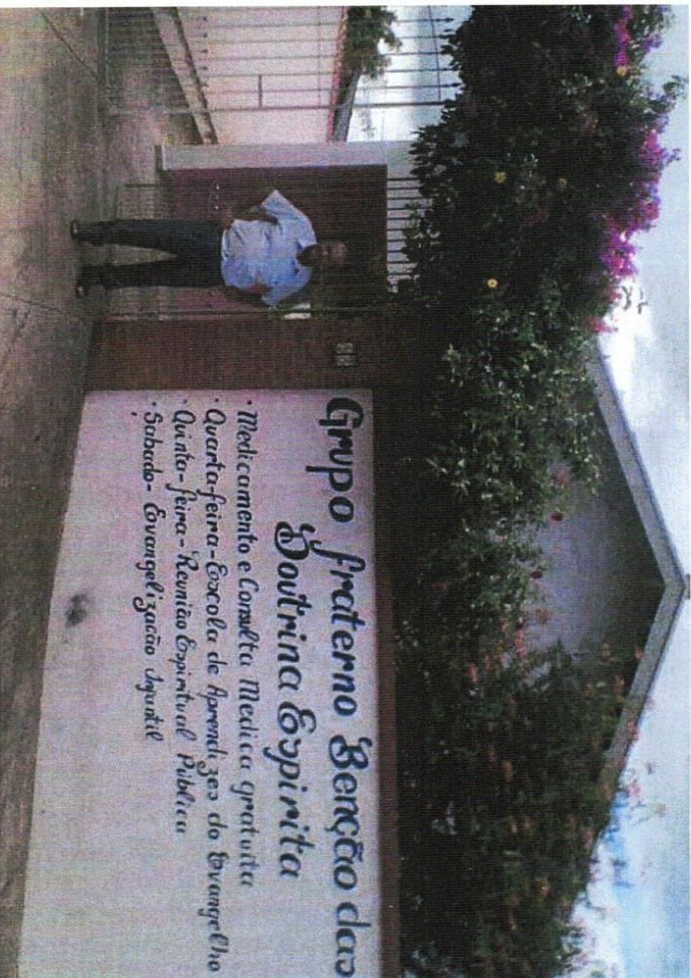 Grupo fraterno Benção das
Doutrina Espirita
· Medicamento e Consulta Medica gratuita
· Quarta-feira-Escola de Aprendizes do Evangelho
· Quinta-feira-Reunião Espiritual Pública
· Sabado-Evangelização Infantil